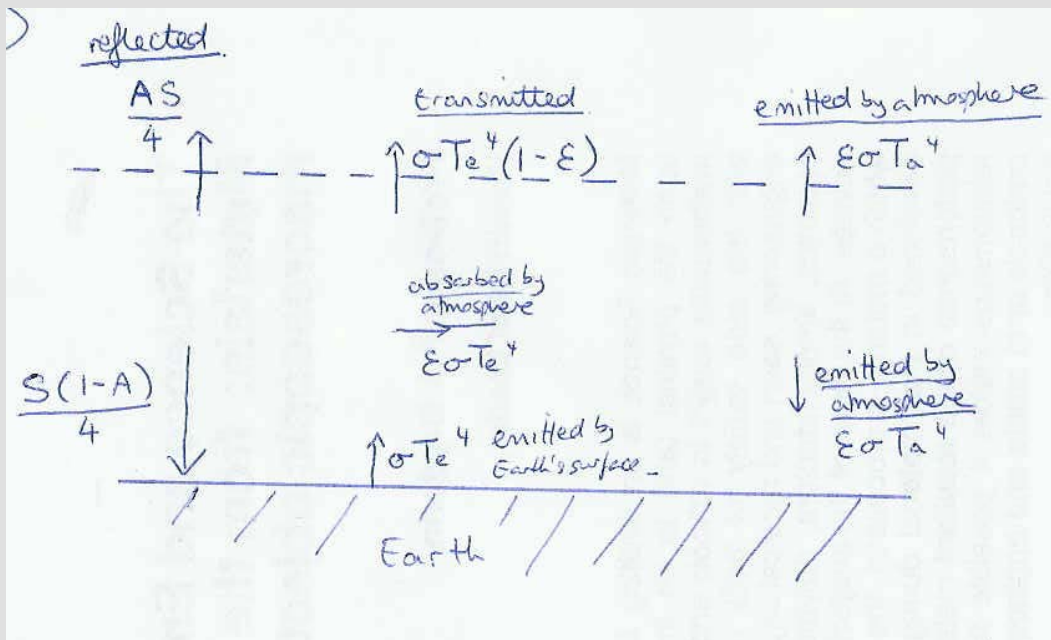 )
reflected
AS
4
transmitted
σTe⁴(1-ε)
emitted by atmosphere
εσTa⁴
absorbed by
atmosphere
εσTe⁴
S(1-A)
4
σTe⁴ emitted by
Earth's surface
emitted by
atmosphere
εσTa⁴
Earth